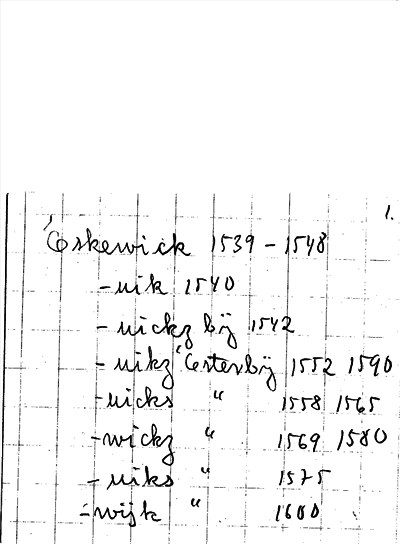 1.
Eskewick 1539 - 1548
- uik 1540
- uickz bÿ 1542
- uikz Österbÿ 1552 1590
- uicks " 1558 1565
- wickz " 1569 1580
- uiks " 1575
- wijk " 1600